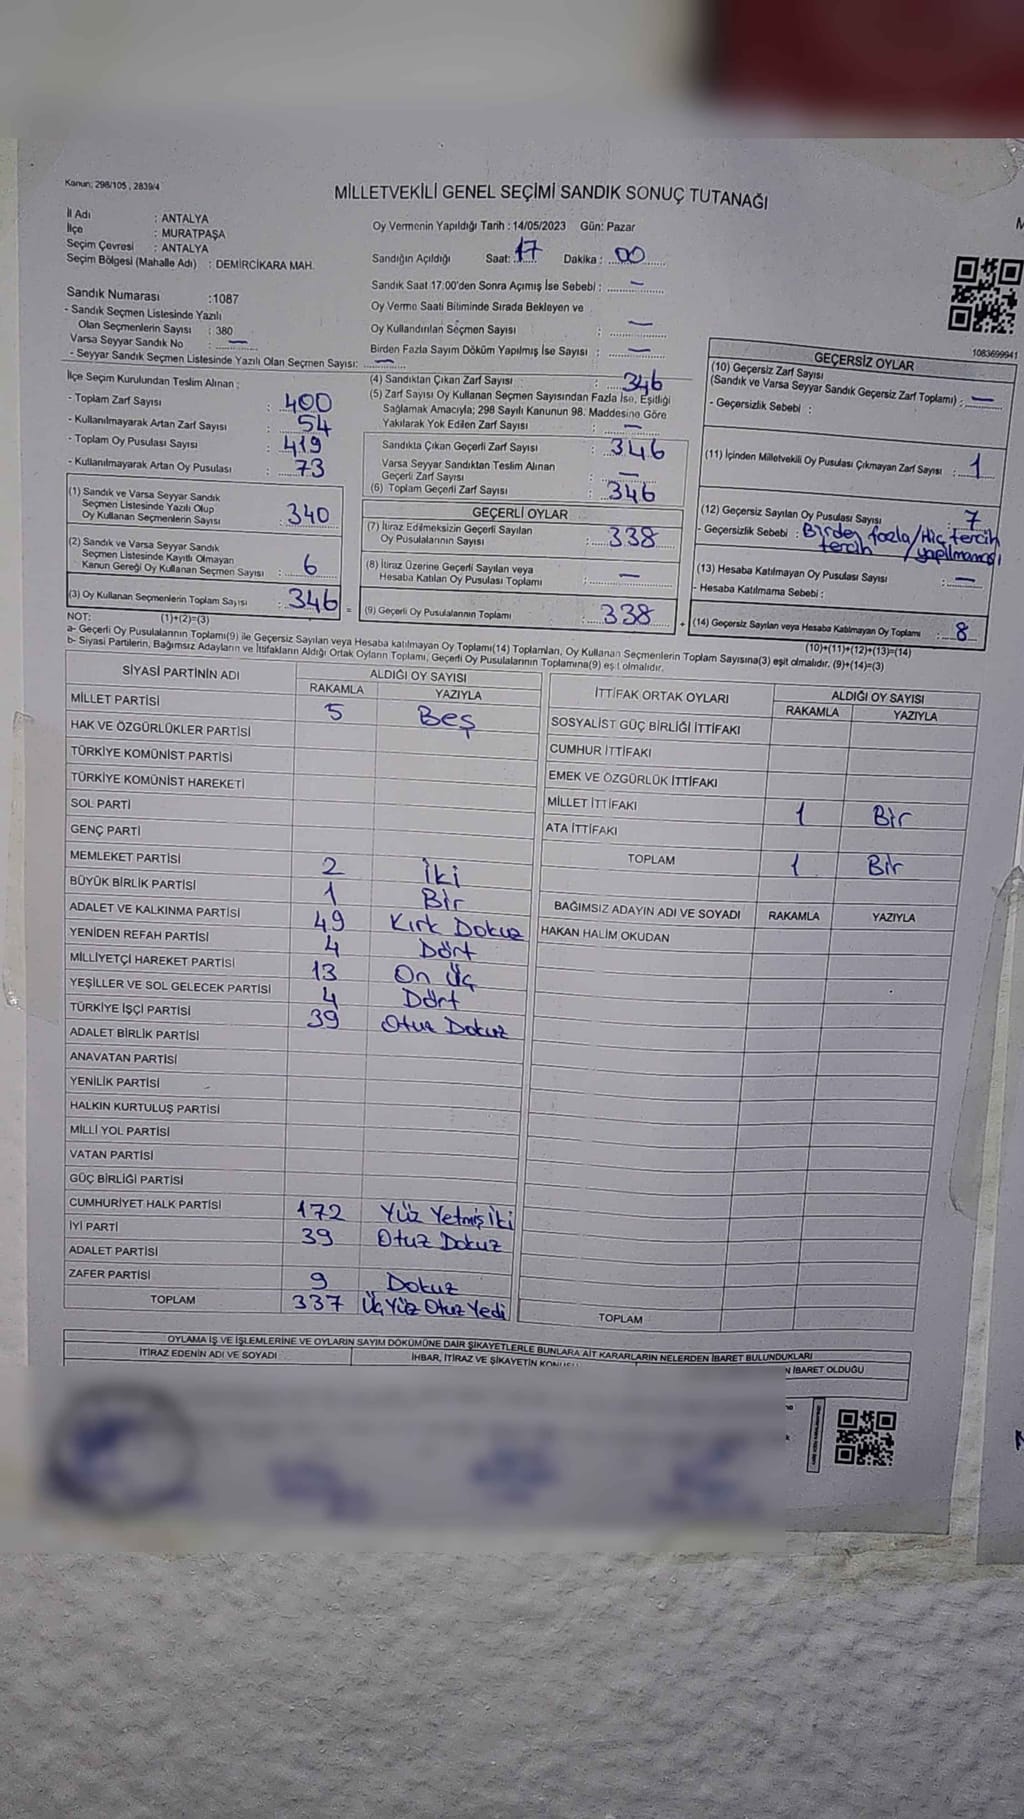 Kanun; 298/105, 2839/4
MİLLETVEKİLİ GENEL SEÇİMİ SANDIK SONUÇ TUTANAĞI
İl Adı : ANTALYA
İlçe : MURATPAŞA
Seçim Çevresi : ANTALYA
Seçim Bölgesi (Mahalle Adı) : DEMİRCİKARA MAH.
Oy Vermenin Yapıldığı Tarih : 14/05/2023 Gün: Pazar
Sandığın Açıldığı Saat: 17 Dakika : 00
Sandık Saat 17:00'den Sonra Açılmış İse Sebebi : —
Oy Verme Saati Bitiminde Sırada Bekleyen ve
Oy Kullandırılan Seçmen Sayısı : —
Birden Fazla Sayım Döküm Yapılmış İse Sayısı : —
Sandık Numarası :1087
- Sandık Seçmen Listesinde Yazılı
Olan Seçmenlerin Sayısı : 380
Varsa Seyyar Sandık No : —
- Seyyar Sandık Seçmen Listesinde Yazılı Olan Seçmen Sayısı: —
İlçe Seçim Kurulundan Teslim Alınan :
- Toplam Zarf Sayısı : 400
- Kullanılmayarak Artan Zarf Sayısı : 54
- Toplam Oy Pusulası Sayısı : 419
- Kullanılmayarak Artan Oy Pusulası : 73
(1) Sandık ve Varsa Seyyar Sandık
Seçmen Listesinde Yazılı Olup
Oy Kullanan Seçmenlerin Sayısı : 340
(2) Sandık ve Varsa Seyyar Sandık
Seçmen Listesinde Kayıtlı Olmayan
Kanun Gereği Oy Kullanan Seçmen Sayısı : 6
(3) Oy Kullanan Seçmenlerin Toplam Sayısı : 346 =
(1)+(2)=(3)
(4) Sandıktan Çıkan Zarf Sayısı : 346
(5) Zarf Sayısı Oy Kullanan Seçmen Sayısından Fazla İse, Eşitliği
Sağlamak Amacıyla; 298 Sayılı Kanunun 98. Maddesine Göre
Yakılarak Yok Edilen Zarf Sayısı : —
Sandıkta Çıkan Geçerli Zarf Sayısı : 346
Varsa Seyyar Sandıktan Teslim Alınan
Geçerli Zarf Sayısı : —
(6) Toplam Geçerli Zarf Sayısı : 346
GEÇERLİ OYLAR
(7) İtiraz Edilmeksizin Geçerli Sayılan
Oy Pusulalarının Sayısı : 338
(8) İtiraz Üzerine Geçerli Sayılan veya
Hesaba Katılan Oy Pusulası Toplamı : —
(9) Geçerli Oy Pusulalarının Toplamı : 338 +
1083699941
GEÇERSİZ OYLAR
(10) Geçersiz Zarf Sayısı
(Sandık ve Varsa Seyyar Sandık Geçersiz Zarf Toplamı) : —
- Geçersizlik Sebebi :
(11) İçinden Milletvekili Oy Pusulası Çıkmayan Zarf Sayısı : 1
(12) Geçersiz Sayılan Oy Pusulası Sayısı : 7
- Geçersizlik Sebebi : Birden fazla/Hiç tercih
tercih /yapılmaması
(13) Hesaba Katılmayan Oy Pusulası Sayısı : —
- Hesaba Katılmama Sebebi :
(14) Geçersiz Sayılan veya Hesaba Katılmayan Oy Toplamı : 8
(10)+(11)+(12)+(13)=(14)
NOT:
a- Geçerli Oy Pusulalarının Toplamı(9) ile Geçersiz Sayılan veya Hesaba katılmayan Oy Toplamı(14) Toplamları, Oy Kullanan Seçmenlerin Toplam Sayısına(3) eşit olmalıdır. (9)+(14)=(3)
b- Siyasi Partilerin, Bağımsız Adayların ve İttifakların Aldığı Ortak Oyların Toplamı, Geçerli Oy Pusulalarının Toplamına(9) eşit olmalıdır.
SİYASİ PARTİNİN ADI ALDIĞI OY SAYISI
RAKAMLA YAZIYLA
MİLLET PARTİSİ 5 Beş
HAK VE ÖZGÜRLÜKLER PARTİSİ
TÜRKİYE KOMÜNİST PARTİSİ
TÜRKİYE KOMÜNİST HAREKETİ
SOL PARTİ
GENÇ PARTİ
MEMLEKET PARTİSİ 2 İki
BÜYÜK BİRLİK PARTİSİ 1 Bir
ADALET VE KALKINMA PARTİSİ 49 Kırk Dokuz
YENİDEN REFAH PARTİSİ 4 Dört
MİLLİYETÇİ HAREKET PARTİSİ 13 On Üç
YEŞİLLER VE SOL GELECEK PARTİSİ 4 Dört
TÜRKİYE İŞÇİ PARTİSİ 39 Otuz Dokuz
ADALET BİRLİK PARTİSİ
ANAVATAN PARTİSİ
YENİLİK PARTİSİ
HALKIN KURTULUŞ PARTİSİ
MİLLİ YOL PARTİSİ
VATAN PARTİSİ
GÜÇ BİRLİĞİ PARTİSİ
CUMHURİYET HALK PARTİSİ 172 Yüz Yetmiş İki
İYİ PARTİ 39 Otuz Dokuz
ADALET PARTİSİ
ZAFER PARTİSİ 9 Dokuz
TOPLAM 337 Üç Yüz Otuz Yedi
İTTİFAK ORTAK OYLARI ALDIĞI OY SAYISI
RAKAMLA YAZIYLA
SOSYALİST GÜÇ BİRLİĞİ İTTİFAKI
CUMHUR İTTİFAKI
EMEK VE ÖZGÜRLÜK İTTİFAKI
MİLLET İTTİFAKI 1 Bir
ATA İTTİFAKI
TOPLAM 1 Bir
BAĞIMSIZ ADAYIN ADI VE SOYADI RAKAMLA YAZIYLA
HAKAN HALİM OKUDAN
TOPLAM
OYLAMA İŞ VE İŞLEMLERİNE VE OYLARIN SAYIM DÖKÜMÜNE DAİR ŞİKAYETLERLE BUNLARA AİT KARARLARIN NELERDEN İBARET BULUNDUKLARI
İTİRAZ EDENİN ADI VE SOYADI İHBAR, İTİRAZ VE ŞİKAYETİN KONUSU N İBARET OLDUĞU